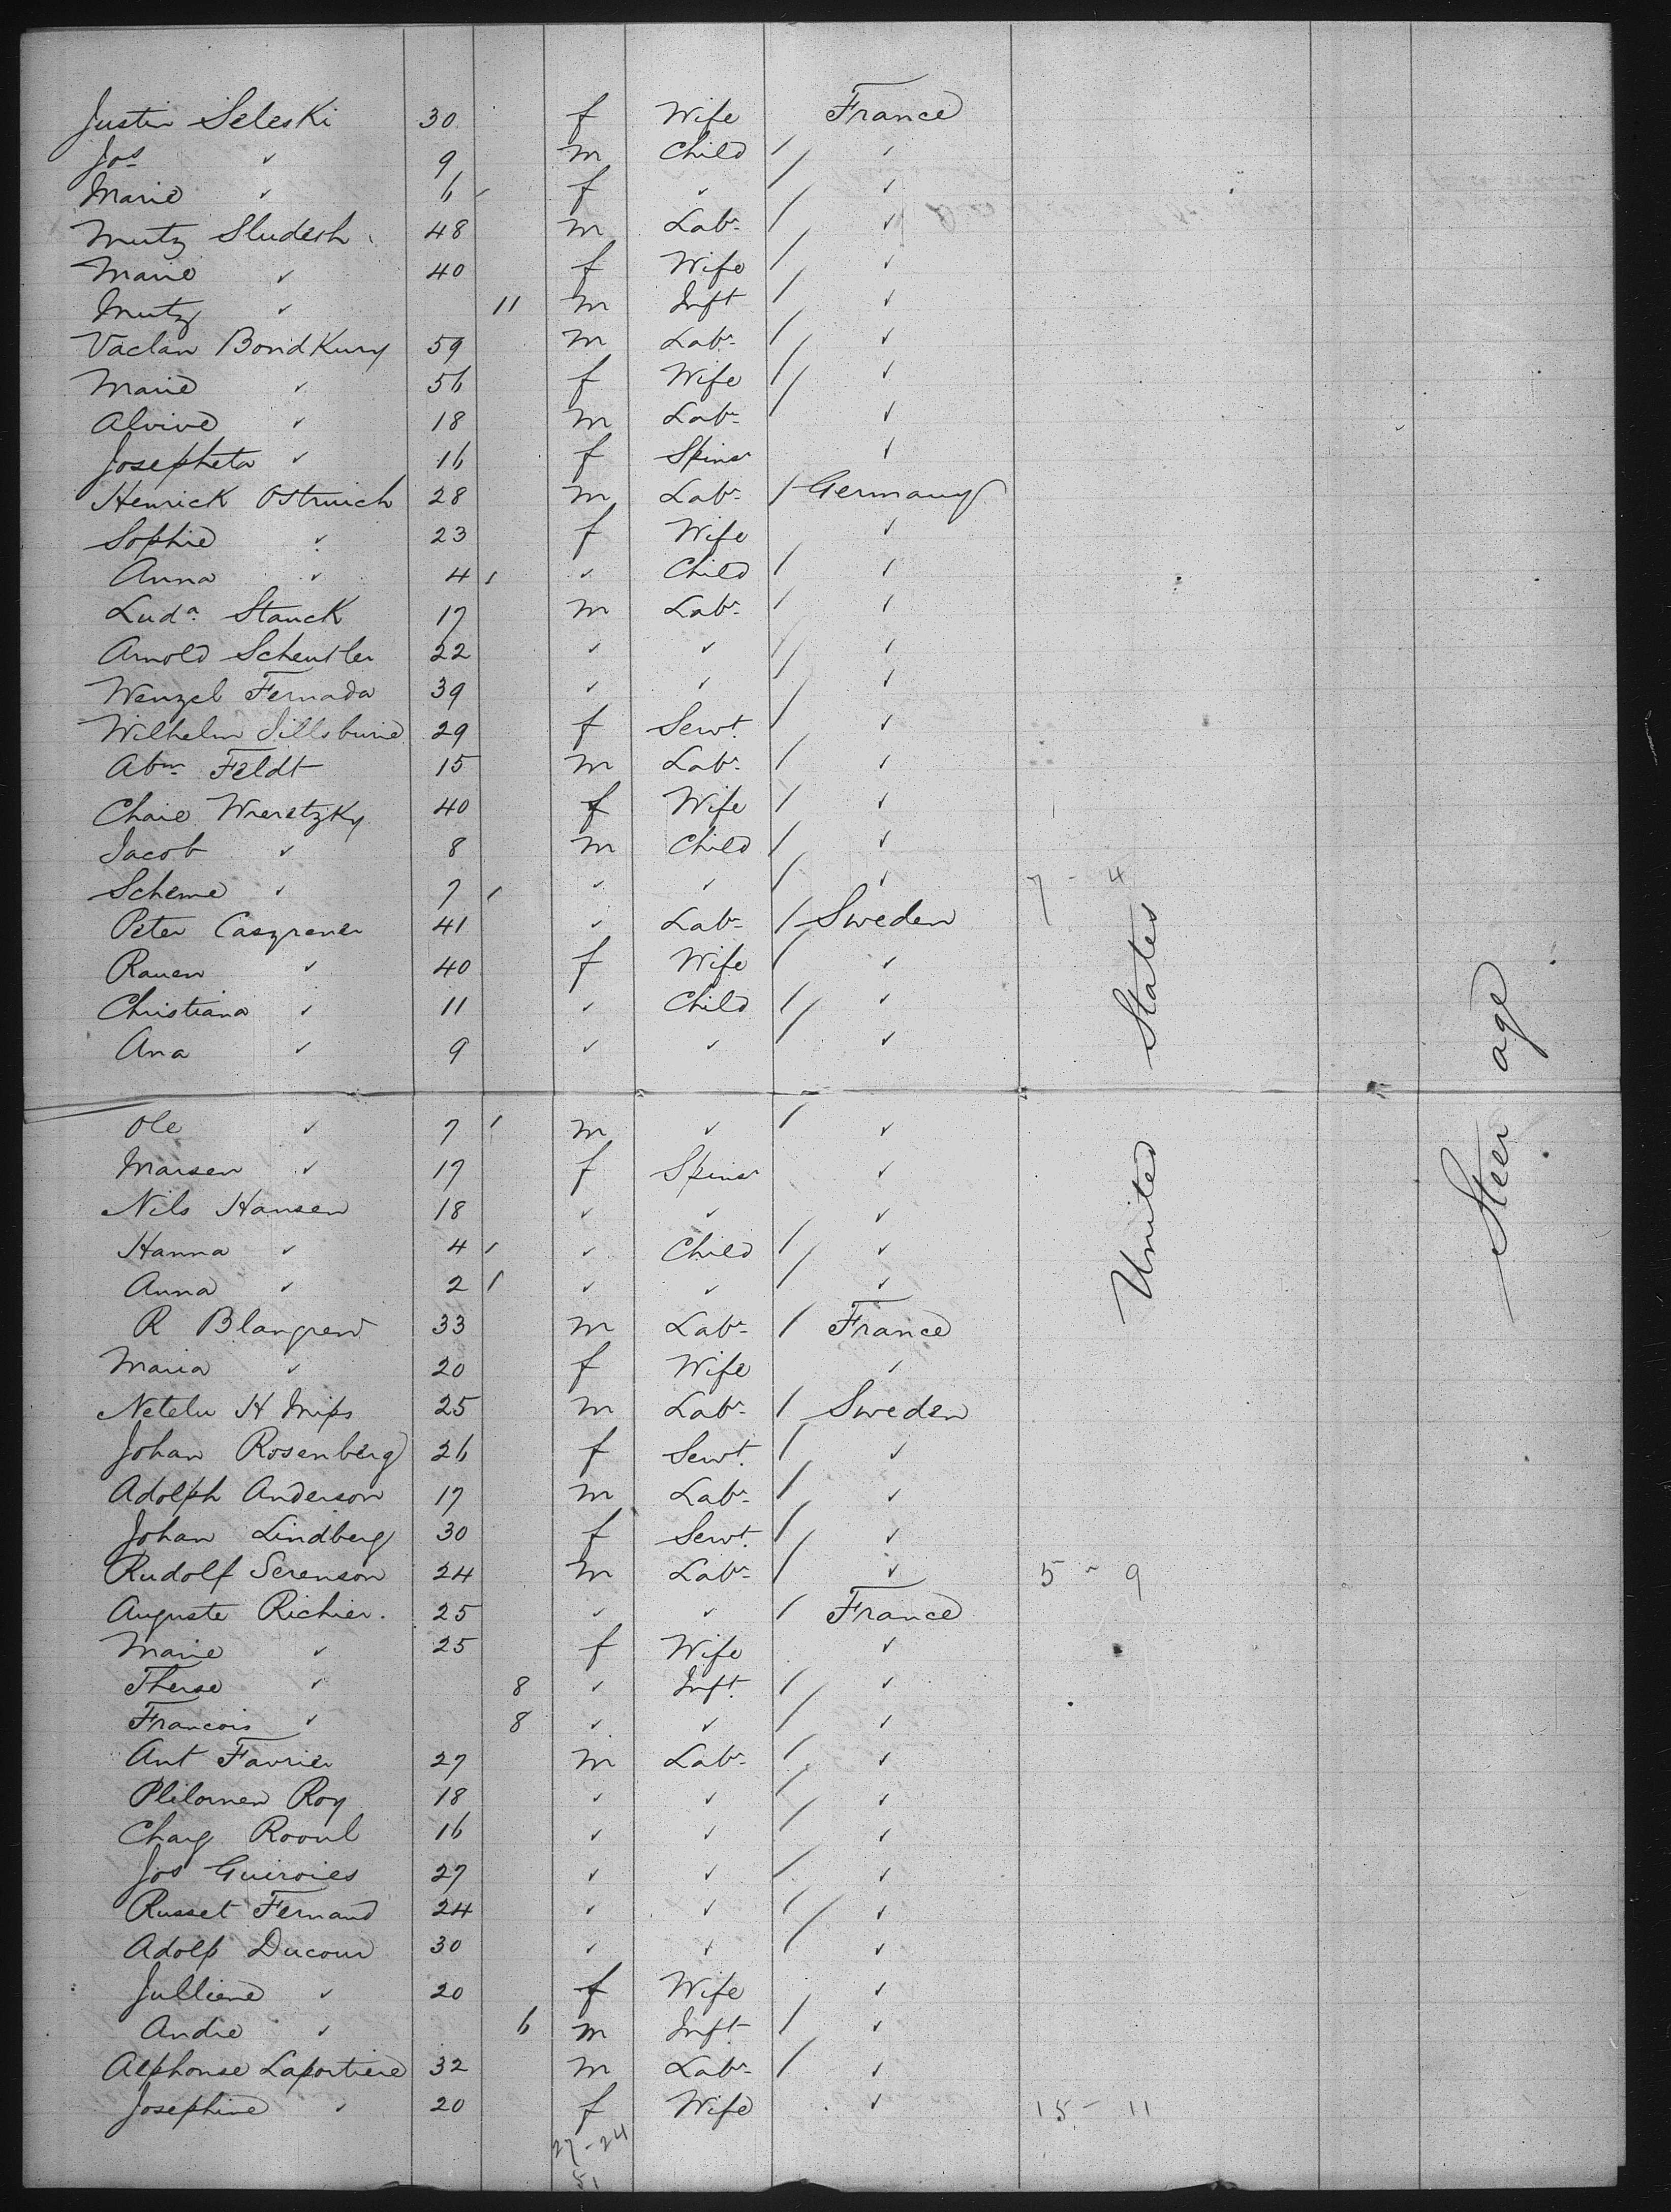 Justin Seleski 30 f Wife France
Jos ✓ 9 m Child / ✓
Marie ✓ 6 f ✓ / ✓
Mutz Sludesh 48 m Labr / ✓
Marie ✓ 40 f Wife / ✓
Mutz ✓ 11 m Inft / ✓
Vaclan BondKury 59 m Labr / ✓
Marie ✓ 56 f Wife / ✓
Alvine ✓ 18 m Labr / ✓
Josepheta ✓ 16 f Spinsr ✓
Henrick Ostruich 28 m Labr / Germany
Sophie ✓ 23 f Wife ✓
Anna ✓ 4 ✓ Child / ✓
Luda Stanck 17 m Labr / ✓
Arnold Scheutler 22 ✓ ✓ / ✓
Wenzel Fernada 39 ✓ ✓ / ✓
Wilhelm Sillsburie 29 f Servt. / ✓
Abm Feldt 15 m Labr / ✓
Chaie Wreretzky 40 f Wife / ✓
Jacob ✓ 8 m Child / ✓
Scheme ✓ 7 ✓ ✓ / ✓ 7 - 4
Peter Casgrener 41 ✓ Labr / Sweden
Rauen ✓ 40 f Wife / ✓
Christiana ✓ 11 ✓ Child / ✓
Ana ✓ 9 ✓ ✓ / ✓
Ole ✓ 7 m ✓ / ✓
Marsen ✓ 17 f Spinsr ✓
Nils Hansen 18 ✓ ✓ ✓
Hanna ✓ 4 ✓ Child / ✓
Anna ✓ 2 ✓ ✓ / ✓
R Blangrend 33 m Labr / France
Maria ✓ 20 f Wife ✓
Netelu H Mips 25 m Labr / Sweden
Johan Rosenberg 26 f Servt. / ✓
Adolph Anderson 17 m Labr / ✓
Johan Lindberg 30 f Servt. / ✓
Rudolf Serenson 24 m Labr / ✓ 5 - 9
Auguste Richier. 25 ✓ ✓ / France
Marie ✓ 25 f Wife ✓
Therse ✓ 8 ✓ Inft. / ✓
Francois ✓ 8 ✓ ✓ / ✓
Ant Favrier 27 m Labr / ✓
Plilomen Roy 18 ✓ ✓ / ✓
Charg Rooul 16 ✓ ✓ / ✓
Jos Guiroies 27 ✓ ✓ / ✓
Russet Fernand 24 ✓ ✓ / ✓
Adolp Ducour 30 ✓ ✓ / ✓
Julliene ✓ 20 f Wife ✓
Andre ✓ 6 m Inft / ✓
Alphonse Laportiere 32 m Labr / ✓
Josephine ✓ 20 f Wife ✓ 15 - 11
27 - 24
51
United States
Steer age